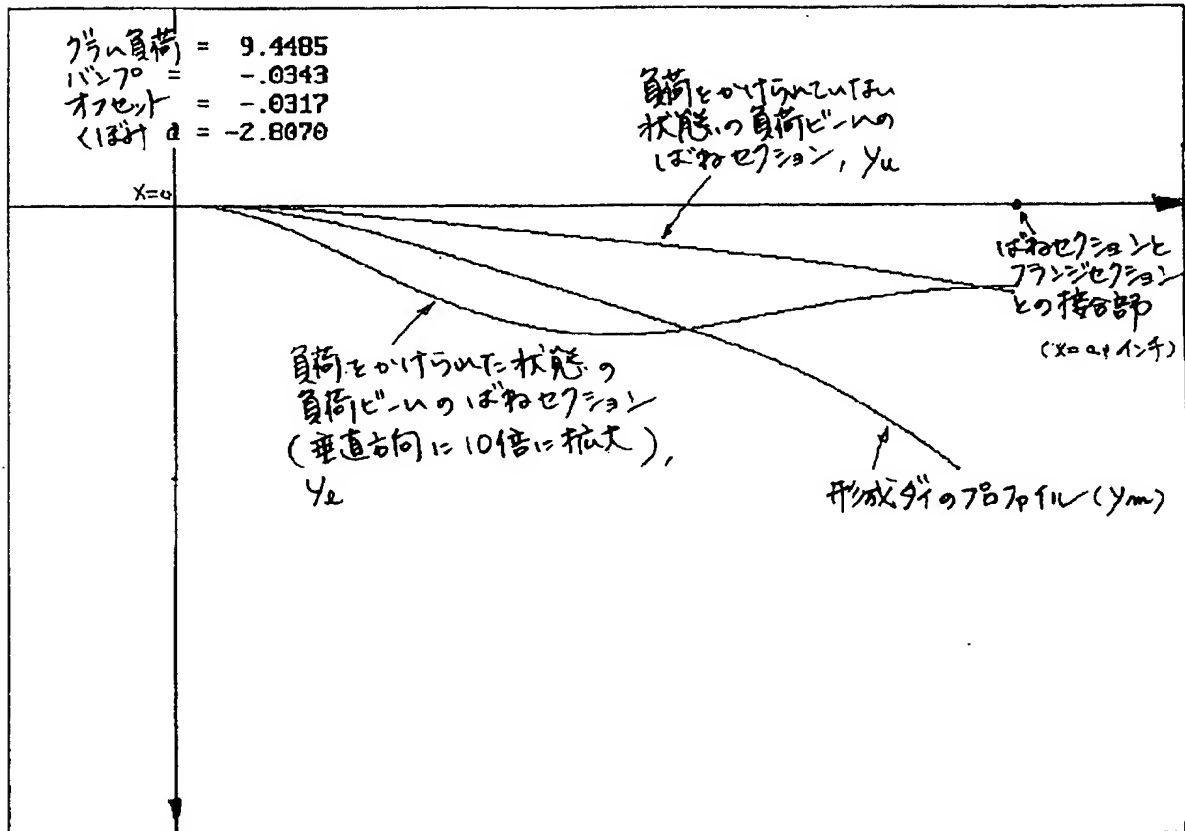 グラム負荷 = 9.4485
バンプ = -.0343
オフセット = -.0317
くぼみ d = -2.8070
負荷をかけられていない
状態の負荷ビームの
ばねセクション, yu
x=0
ばねセクションと
フランジセクション
との接合部
(x=a, インチ)
負荷をかけられた状態の
負荷ビームのばねセクション
(垂直方向に10倍に拡大),
yl
形成ダイのプロファイル(ym)